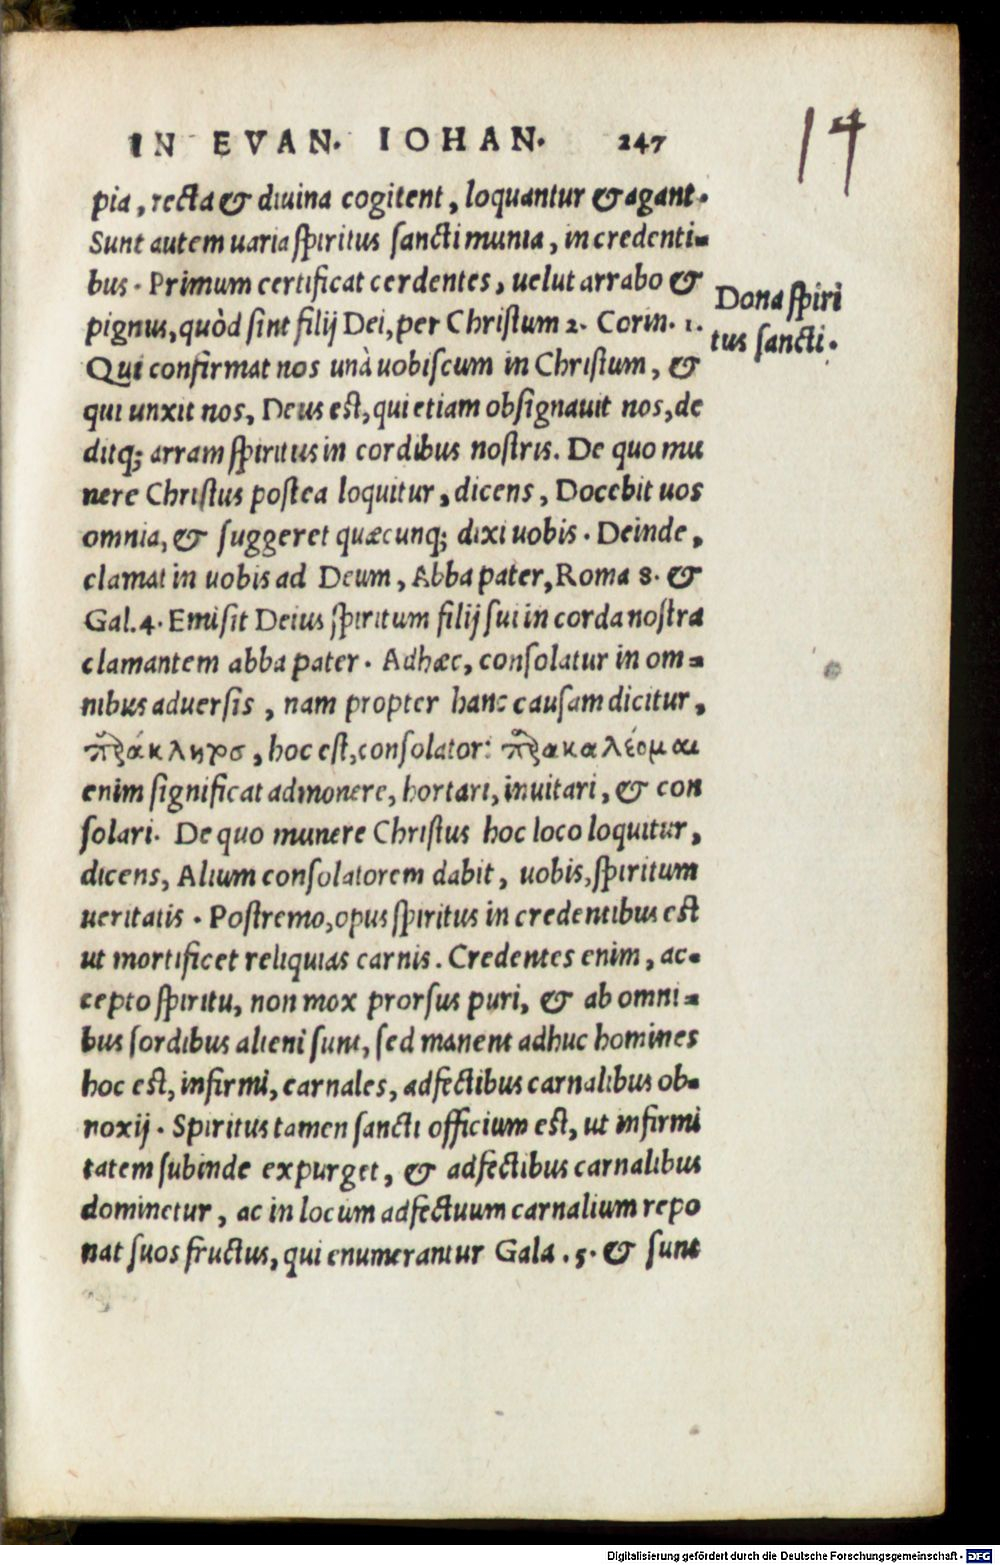 IN EVAN. IOHAN. 247
14
pia, recta & diuina cogitent, loquantur & agant.
Sunt autem uaria ſpiritus ſancti munia, in credenti-
bus. Primum certificat cerdentes, uelut arrabo &
pignus, quòd ſint filij Dei, per Chriſtum 2. Corin. 1.
Qui confirmat nos unà uobiſcum in Chriſtum, &
qui unxit nos, Deus eſt, qui etiam obſignauit nos, de
ditq; arram ſpiritus in cordibus noſtris. De quo mu
nere Chriſtus poſtea loquitur, dicens, Docebit uos
omnia, & ſuggeret quæcunq; dixi uobis. Deinde,
clamat in uobis ad Deum, Abba pater, Roma 8. &
Gal. 4. Emiſit Deius ſpiritum filij ſui in corda noſtra
clamantem abba pater. Adhæc, conſolatur in om-
nibus aduerſis, nam propter hanc cauſam dicitur,
παράκλητος, hoc eſt, conſolator: παρακαλέομαι
enim ſignificat admonere, hortari, inuitari, & con
ſolari. De quo munere Chriſtus hoc loco loquitur,
dicens, Alium conſolatorem dabit, uobis, ſpiritum
ueritatis. Poſtremo, opus ſpiritus in credentibus eſt
ut mortificet reliquias carnis. Credentes enim, ac-
cepto ſpiritu, non mox prorſus puri, & ab omni-
bus ſordibus alieni ſunt, ſed manent adhuc homines
hoc eſt, infirmi, carnales, adfectibus carnalibus ob-
noxij. Spiritus tamen ſancti officium eſt, ut infirmi
tatem ſubinde expurget, & adfectibus carnalibus
dominetur, ac in locum adfectuum carnalium repo
nat ſuos fructus, qui enumerantur Gala. 5. & ſunt
Dona ſpiri
tus ſancti.
Digitalisierung gefördert durch die Deutsche Forschungsgemeinschaft - DFG